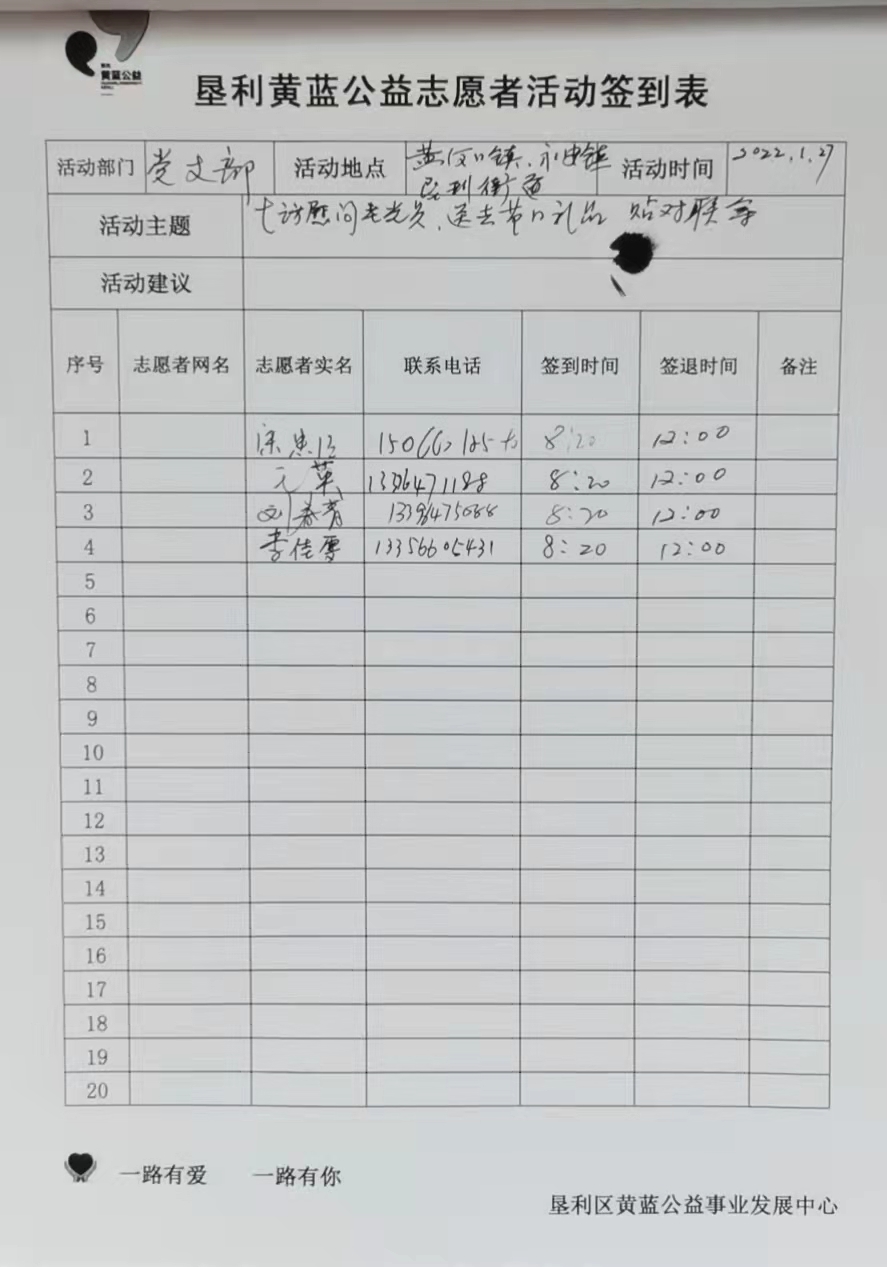 黄蓝公益
垦利黄蓝公益志愿者活动签到表
活动部门 党支部 活动地点 黄河口镇、永安镇 活动时间 2022.1.27
垦利街道
活动主题 走访慰问老党员、送去节日礼品 贴对联等
活动建议
序号 志愿者网名 志愿者实名 联系电话 签到时间 签退时间 备注
1 8:20 12:00
2 8:20 12:00
3 刘春青 8:20 12:00
4 李佳雪 13356605431 8:20 12:00
5
6
7
8
9
10
11
12
13
14
15
16
17
18
19
20
一路有爱 一路有你
垦利区黄蓝公益事业发展中心